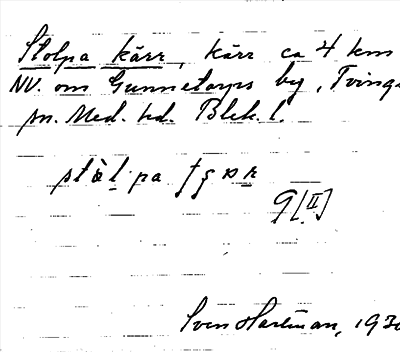 Stolpa kärr, kärr ca 4 km
NV. om Gunnetorps by, Tvings
sn. Med. hd. Blek. l.
9[II]
Sven Hartman, 193